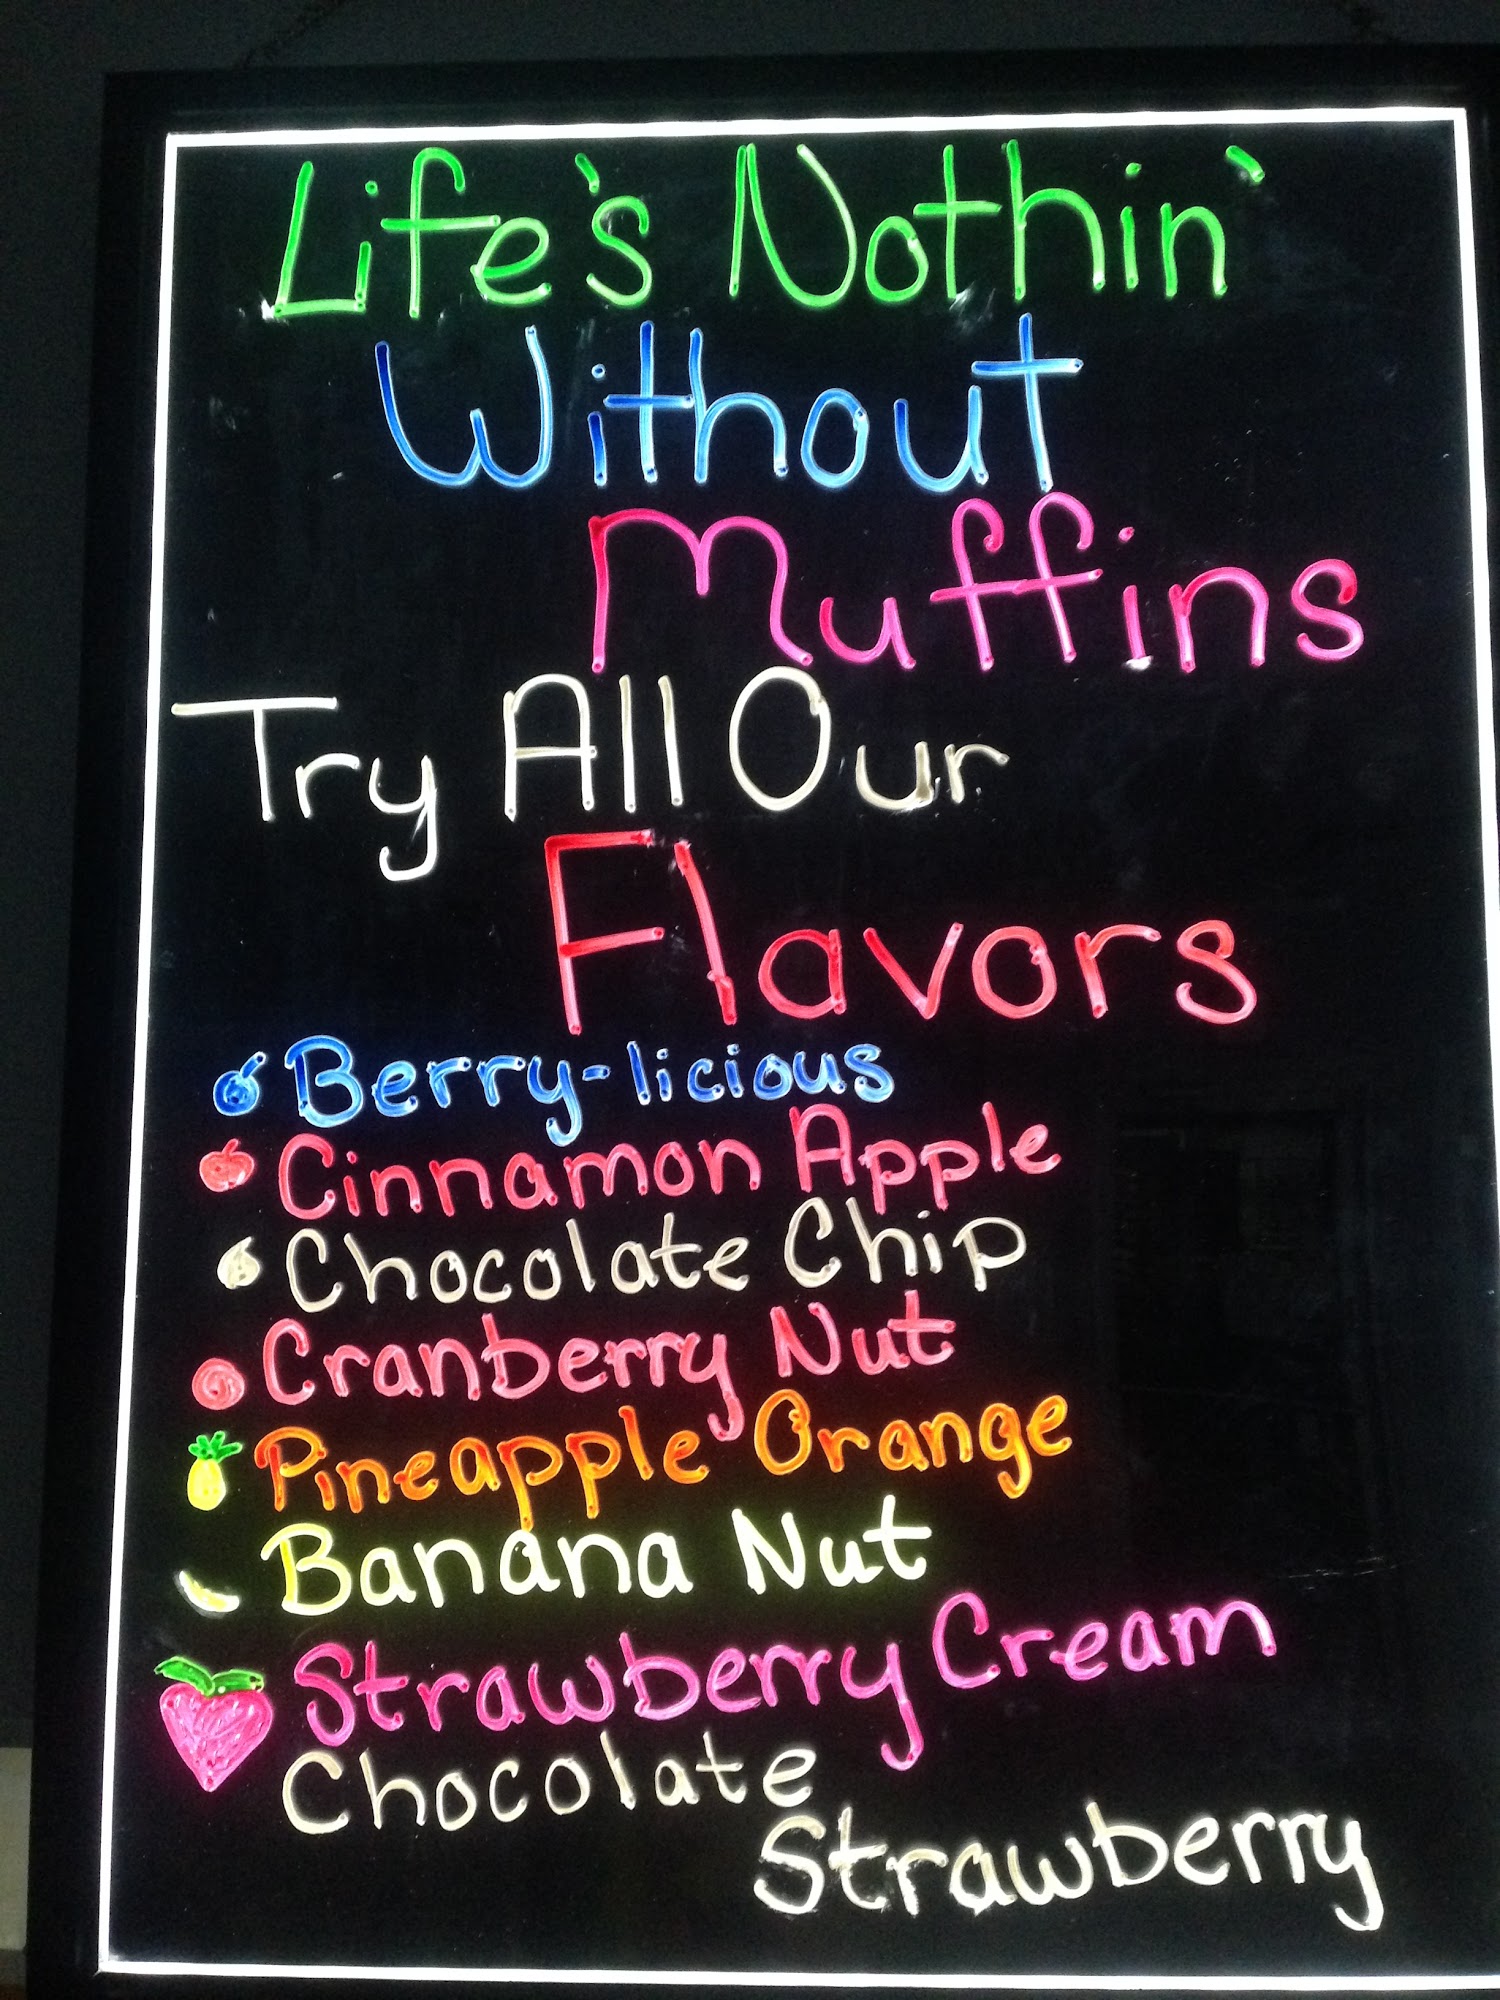 Life's Nothin'
Without
Muffins
Try All Our
Flavors
Berry-licious
Cinnamon Apple
Chocolate Chip
Cranberry Nut
Pineapple Orange
Banana Nut
Strawberry Cream
Chocolate
Strawberry